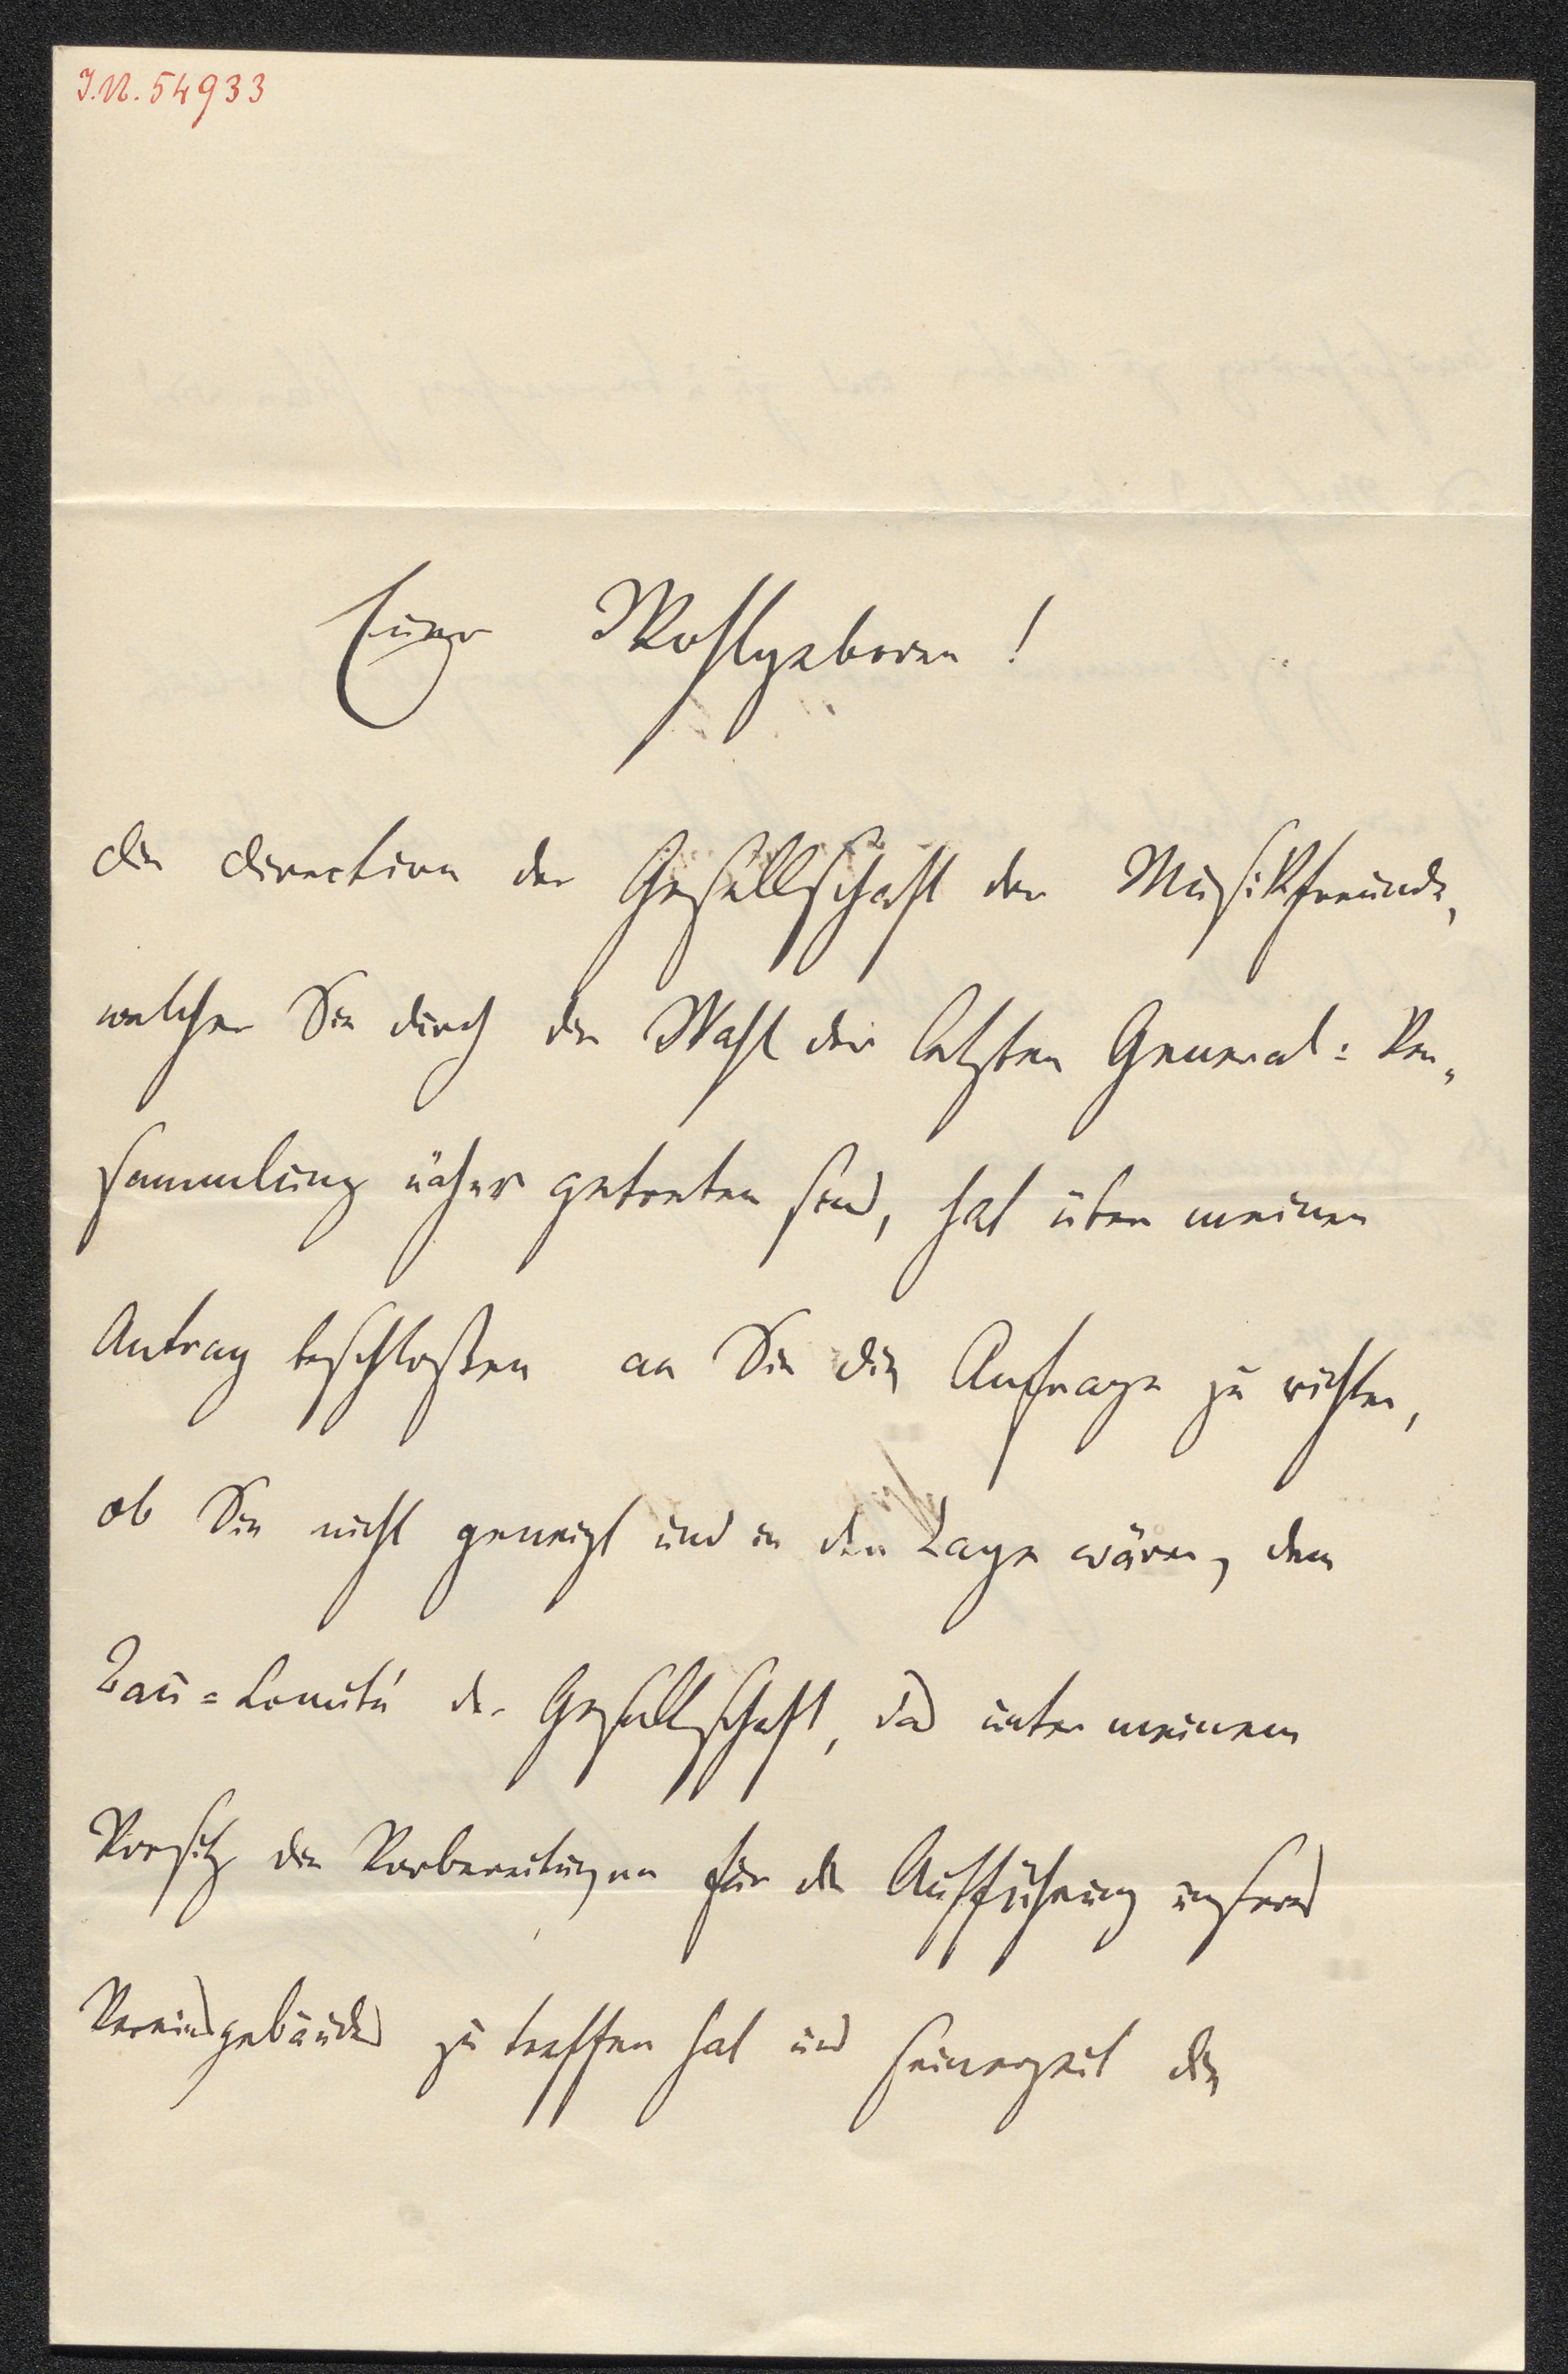 I.N. 54933
Euer Wohlgeboren!
die Direction der Gesellschaft der Musikfreunde,
welcher Sie durch die Wahl der letzten General=Ver„
sammlung näher getreten sind, hat über meinen
Antrag beschloßen an Sie die Anfrage zu richten,
ob Sie nicht geneigt und in der Lage wären, dem
Bau=Comité der Gesellschaft, das unter meinem
Vorsitz die Vorbereitungen für die Aufführung unseres
Vereinsgebäudes zu treffen hat und seinerzeit die